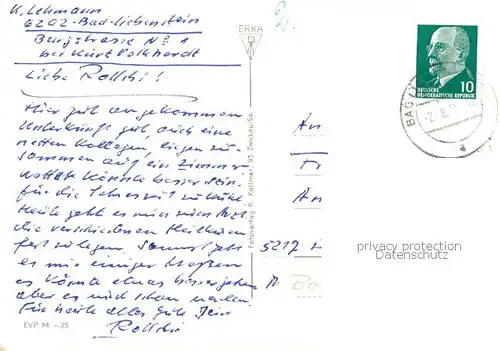 K. Lehmann
6202-Bad-Liebenstein
Burgstrasse No 1
bei Kurt Volkhardt
Liebe Rollchi!
Hier gut angekommen
Unterkunft gut, auch eine
netten Kollegen, liegen zu-
sammen auf ein Zimmer
Wetter könnte besser sein
für die Jahreszeit zu kühl
Heute geht es zum Arzt
die verschiedenen Heilkuren
fest zu legen. Sonst geht
es mir einiger Maßen
es könnte etwas besser gehen
aber es wird schon werden.
Für heute alles gute Dein
Rollchi
EVP M -.25
ERKA
Fotoverlag R. Kallmer, 95 Zwickau/Sa.
DEUTSCHE
DEMOKRATISCHE REPUBLIK
10
BAD
-2.8.
An
Fr
An
5217
privacy protection
Datenschutz